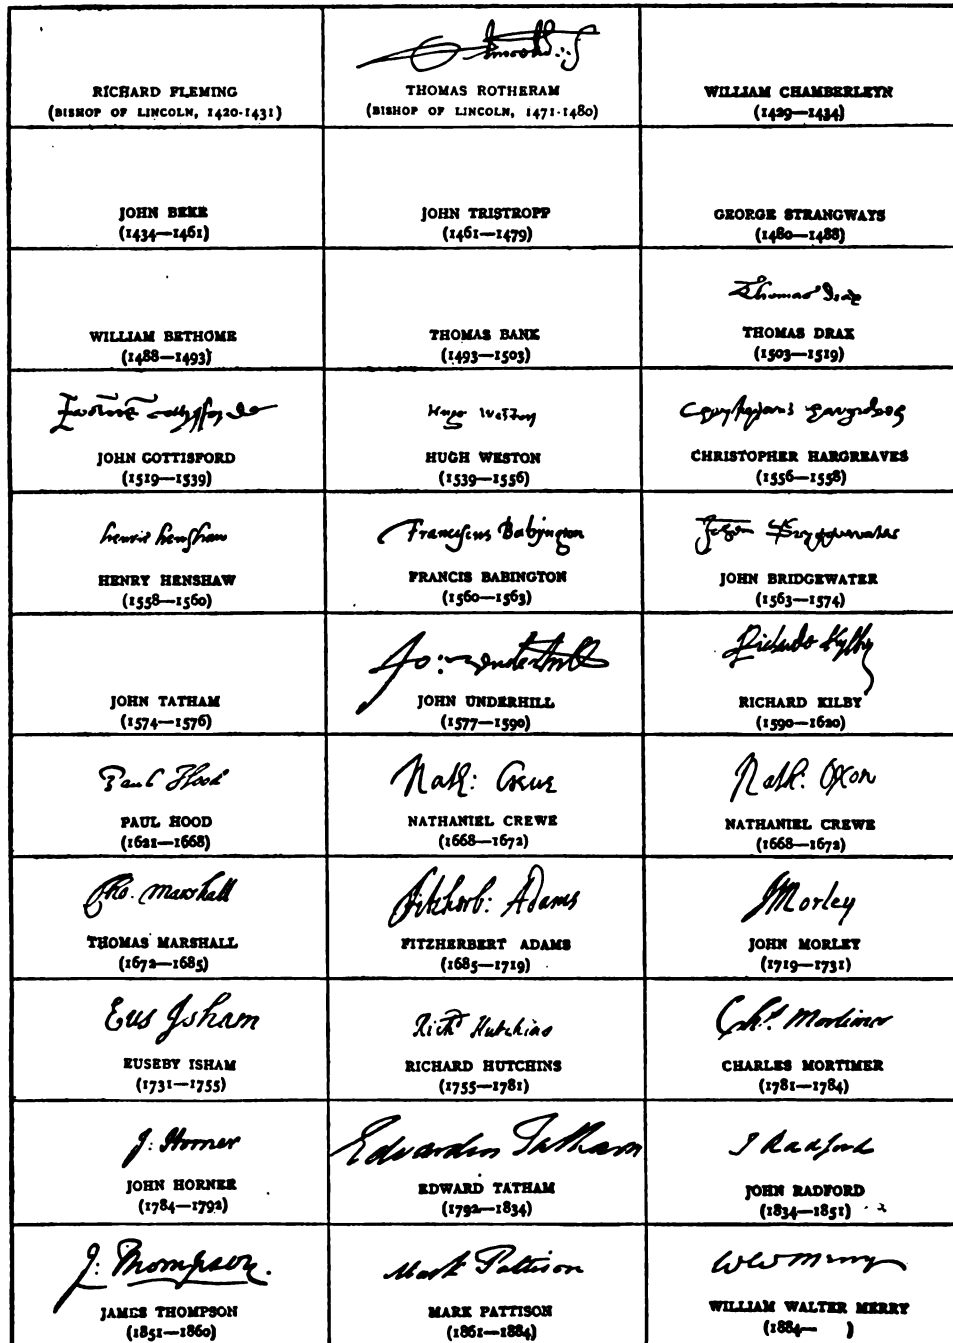 RICHARD FLEMING
(BISHOP OF LINCOLN, 1420-1431)
THOMAS ROTHERAM
(BISHOP OF LINCOLN, 1471-1480)
WILLIAM CHAMBERLEYN
(1429—1434)
JOHN BEKE
(1434—1461)
JOHN TRISTROPP
(1461—1479)
GEORGE STRANGWAYS
(1480—1488)
WILLIAM BETHOME
(1488—1493)
THOMAS BANK
(1493—1503)
Thomas Drax
THOMAS DRAX
(1503—1519)
JOHN COTTISFORD
(1519—1539)
Hugo Weston
HUGH WESTON
(1539—1556)
CHRISTOPHER HARGREAVES
(1556—1558)
henrie henshaw
HENRY HENSHAW
(1558—1560)
Franciscus Babington
FRANCIS BABINGTON
(1560—1563)
JOHN BRIDGEWATER
(1563—1574)
JOHN TATHAM
(1574—1576)
Jo: Underhill
JOHN UNDERHILL
(1577—1590)
Richardo Kylby
RICHARD KILBY
(1590—1620)
Paul Hood
PAUL HOOD
(1621—1668)
Nath: Crewe
NATHANIEL CREWE
(1668—1672)
Nath: Oxon
NATHANIEL CREWE
(1668—1672)
Tho. Marshall
THOMAS MARSHALL
(1672—1685)
Fitzherb: Adams
FITZHERBERT ADAMS
(1685—1719)
J Morley
JOHN MORLEY
(1719—1731)
Eus Isham
EUSEBY ISHAM
(1731—1755)
Richd Hutchins
RICHARD HUTCHINS
(1755—1781)
Chs. Mortimer
CHARLES MORTIMER
(1781—1784)
J: Horner
JOHN HORNER
(1784—1792)
Edvardus Tatham
EDWARD TATHAM
(1792—1834)
J Radford
JOHN RADFORD
(1834—1851)
J: Thompson.
JAMES THOMPSON
(1851—1860)
Mark Pattison
MARK PATTISON
(1861—1884)
W W Merry
WILLIAM WALTER MERRY
(1884— )